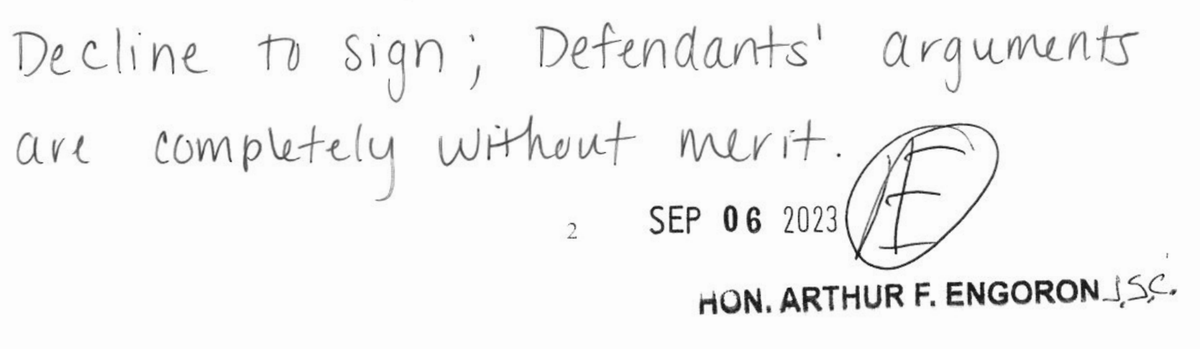 Decline to sign; Defendants' arguments
are completely without merit.
2 SEP 06 2023 AE
HON. ARTHUR F. ENGORON J.S.C.